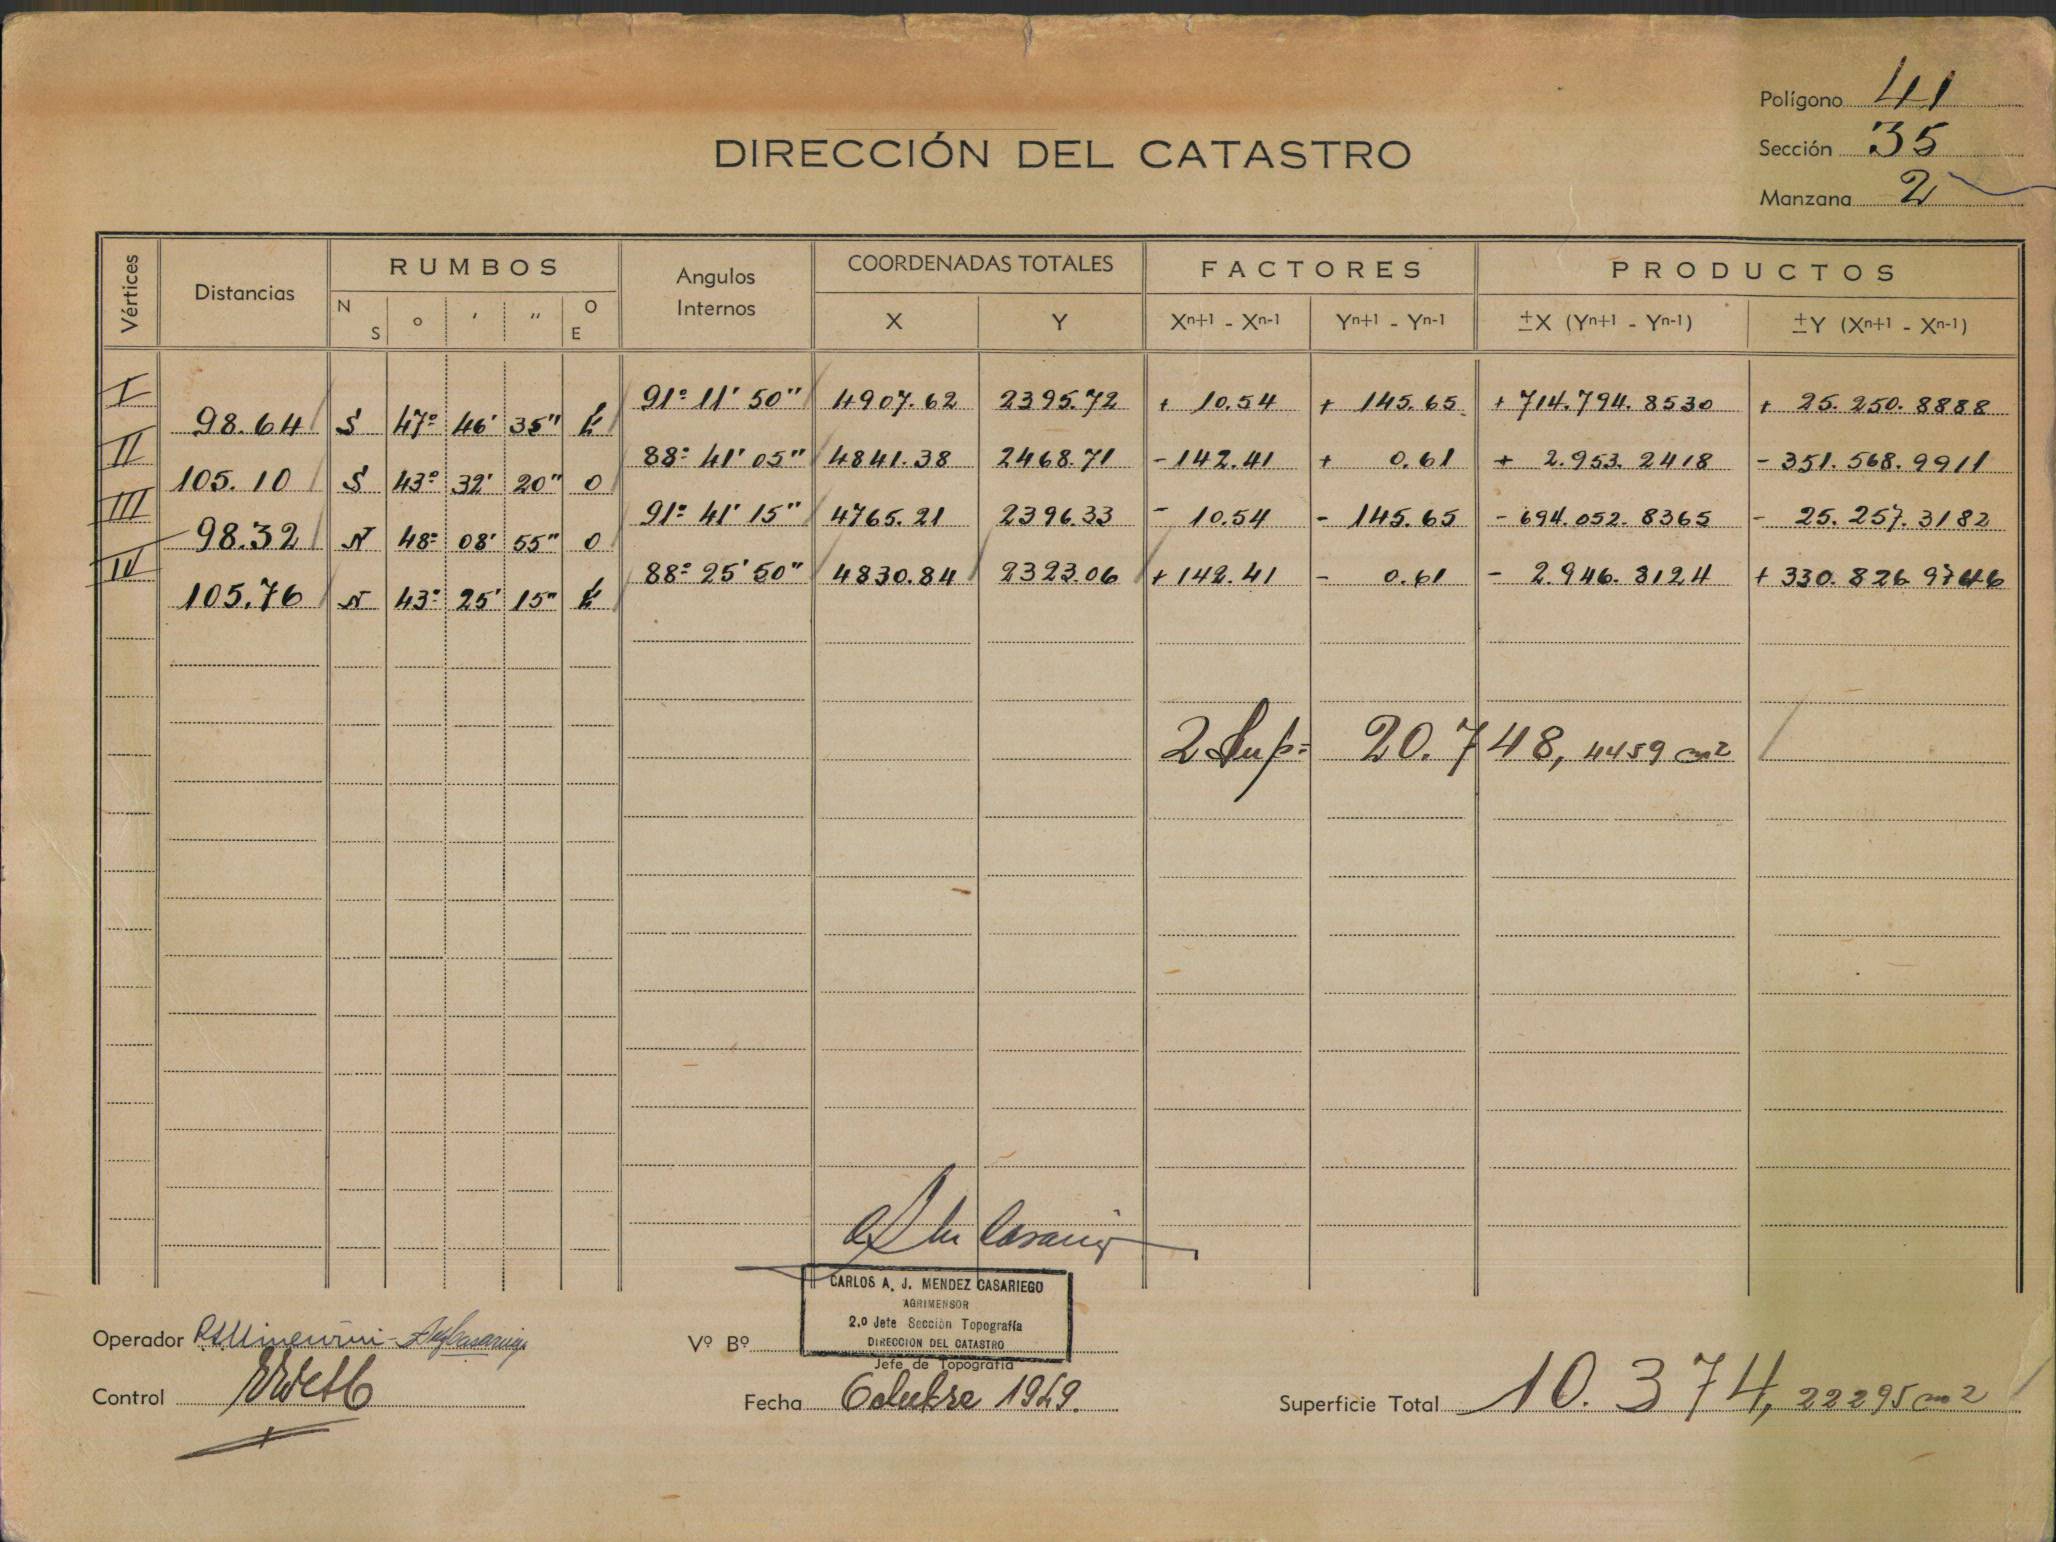 Polígono 41
DIRECCIÓN DEL CATASTRO
Sección 35
Manzana 2
Vértices Distancias RUMBOS Angulos Internos COORDENADAS TOTALES FACTORES PRODUCTOS
N S ° ' " O E X Y Xn+1 - Xn-1 Yn+1 - Yn-1 ±X (Yn+1 - Yn-1) ±Y (Xn+1 - Xn-1)
I 91° 11' 50" 4907.62 2395.72 + 10.54 + 145.65 + 714.794.8530 + 25.250.8888
98.64 S 47° 46' 35" E
II 88° 41' 05" 4841.38 2468.71 - 142.41 + 0.61 + 2.953.2418 - 351.568.9911
105.10 S 43° 32' 20" O
III 91° 41' 15" 4765.21 2396.33 - 10.54 - 145.65 - 694.052.8365 - 25.257.3182
98.32 N 48° 08' 55" O
IV 88° 25' 50" 4830.84 2323.06 + 142.41 - 0.61 - 2.946.8124 + 330.826.9746
105.76 N 43° 25' 15" E
2 Sup= 20.748,4459 m2
CARLOS A. J. MENDEZ CASARIEGO
AGRIMENSOR
2.o Jefe Sección Topografía
DIRECCION DEL CATASTRO
Operador
Vº Bº
Jefe de Topografía
Control
Fecha Octubre 1949.
Superficie Total 10.374,22295 m2